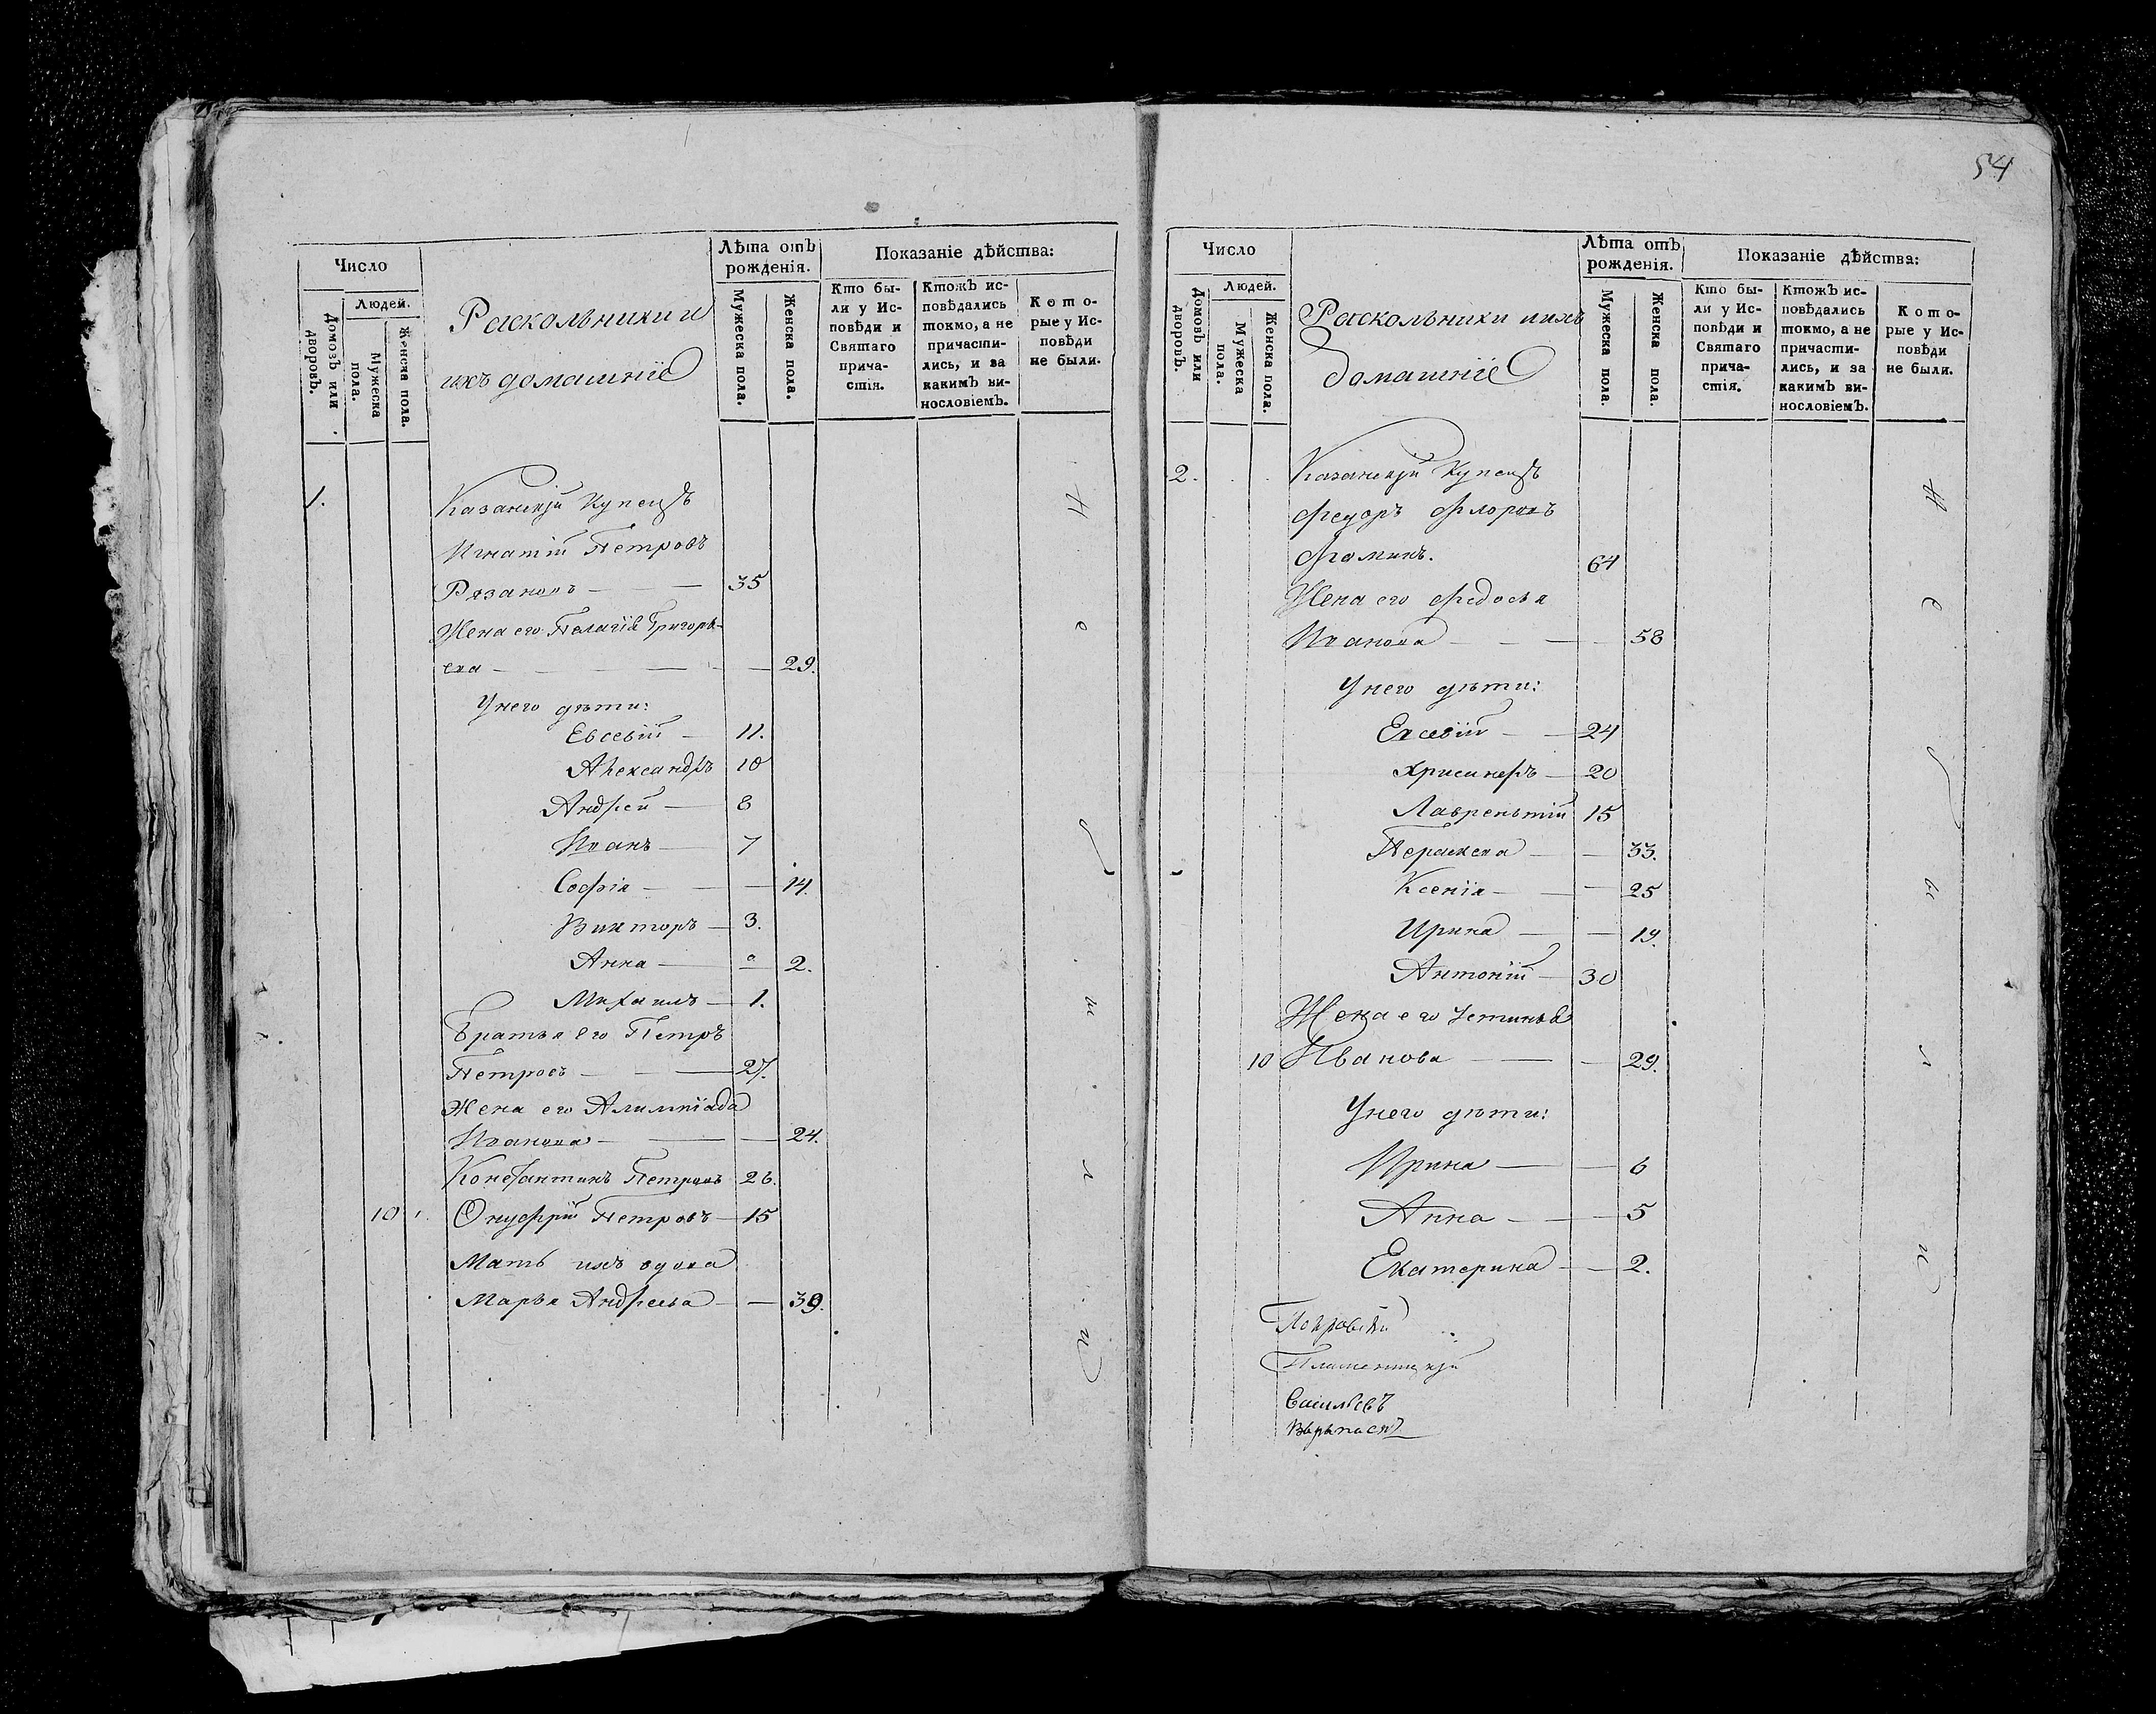 54
Число
Людей.
Домовъ или дворовъ.
Мужеска пола.
Женска пола.
Раскольники и
ихъ домашніе
Лѣта отъ
рожденія.
Мужеска пола.
Женска пола.
Показаніе дѣйства:
Кто бы-
ли у Ис-
повѣди и
Святаго
прича-
стія.
Ктожъ ис-
повѣдались
токмо, а не
причасти-
лись, и за
какимъ ви-
нословіемъ.
Кото-
рые у Ис-
повѣди
не были.
1. Казанскій Купецъ
Игнатій Петровъ
Рязановъ — 35
Жена его Пелагія Григорь-
ева — 29.
У него дѣти:
Евсевій — 11.
Александръ 10
Андрей — 8
Иванъ — 7
Софія — 14.
Викторъ — 3.
Анна — 2.
Михаилъ — 1.
Братья его Петръ
Петровъ — 27.
Жена его Алимпіада
Иванова — 24.
Константинъ Петровъ 26.
10 Онуфрій Петровъ — 15
Мать ихъ вдова
Марья Андреева — 39.
Не были
Число
Людей.
Домовъ или дворовъ.
Мужеска пола.
Женска пола.
Раскольники и ихъ
домашніе
Лѣта отъ
рожденія.
Мужеска пола.
Женска пола.
Показаніе дѣйства:
Кто бы-
ли у Ис-
повѣди и
Святаго
прича-
стія.
Ктожъ ис-
повѣдались
токмо, а не
причасти-
лись, и за
какимъ ви-
нословіемъ.
Кото-
рые у Ис-
повѣди
не были.
2. Казанскій Купецъ
Федоръ Флоровъ
Фоминъ. 64
Жена его Федосья
Иванова — 58
У него дѣти:
Евсевій — 24
20
Лаврентій 15
33.
Ксенія — 25
Ирина — 19.
Антоній — 30
Жена его Устинья
10 Иванова — 29.
У него дѣти:
Ирина — 6
Анна — 5
Екатерина — 2.
Не были
Васильевъ